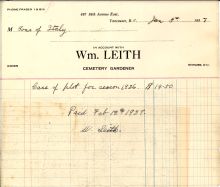 PHONE FRASER
Avenue East,
Vancouver, B.C. Jan 2nd 1937
M Sons of Italy
IN ACCOUNT WITH
Wm. LEITH
CEMETERY GARDENER
Care of plot for season 1936. $14.50
Paid Feb 12th 1937.
W. Leith.